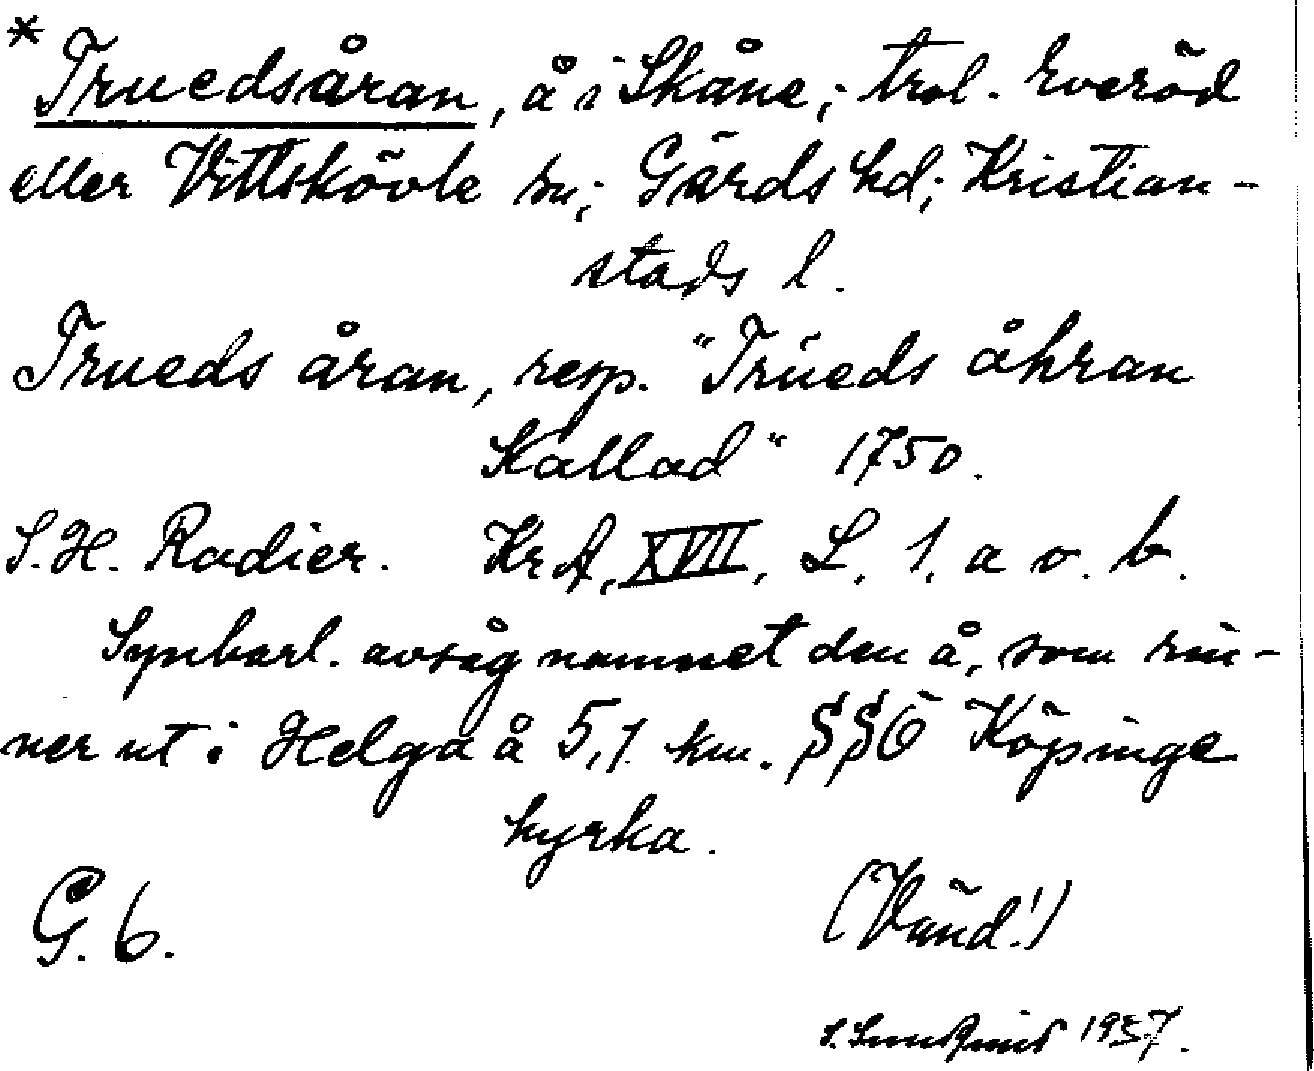 * Truedsåran, å i Skåne; trol. Everöd
eller Vittskövle sn; Gärds hd; Kristian-
stads l.
Trueds åran, resp. "Trüeds åhran
Kallad" 1750.
S.H. Radier. KrA, XVII, L. 1. a o. b.
Synbarl. avsåg namnet den å, som rin-
ner ut i Helga å 5,1 km. SSÖ Köpinge
kyrka.
G. 6. (Vänd!)
1937.